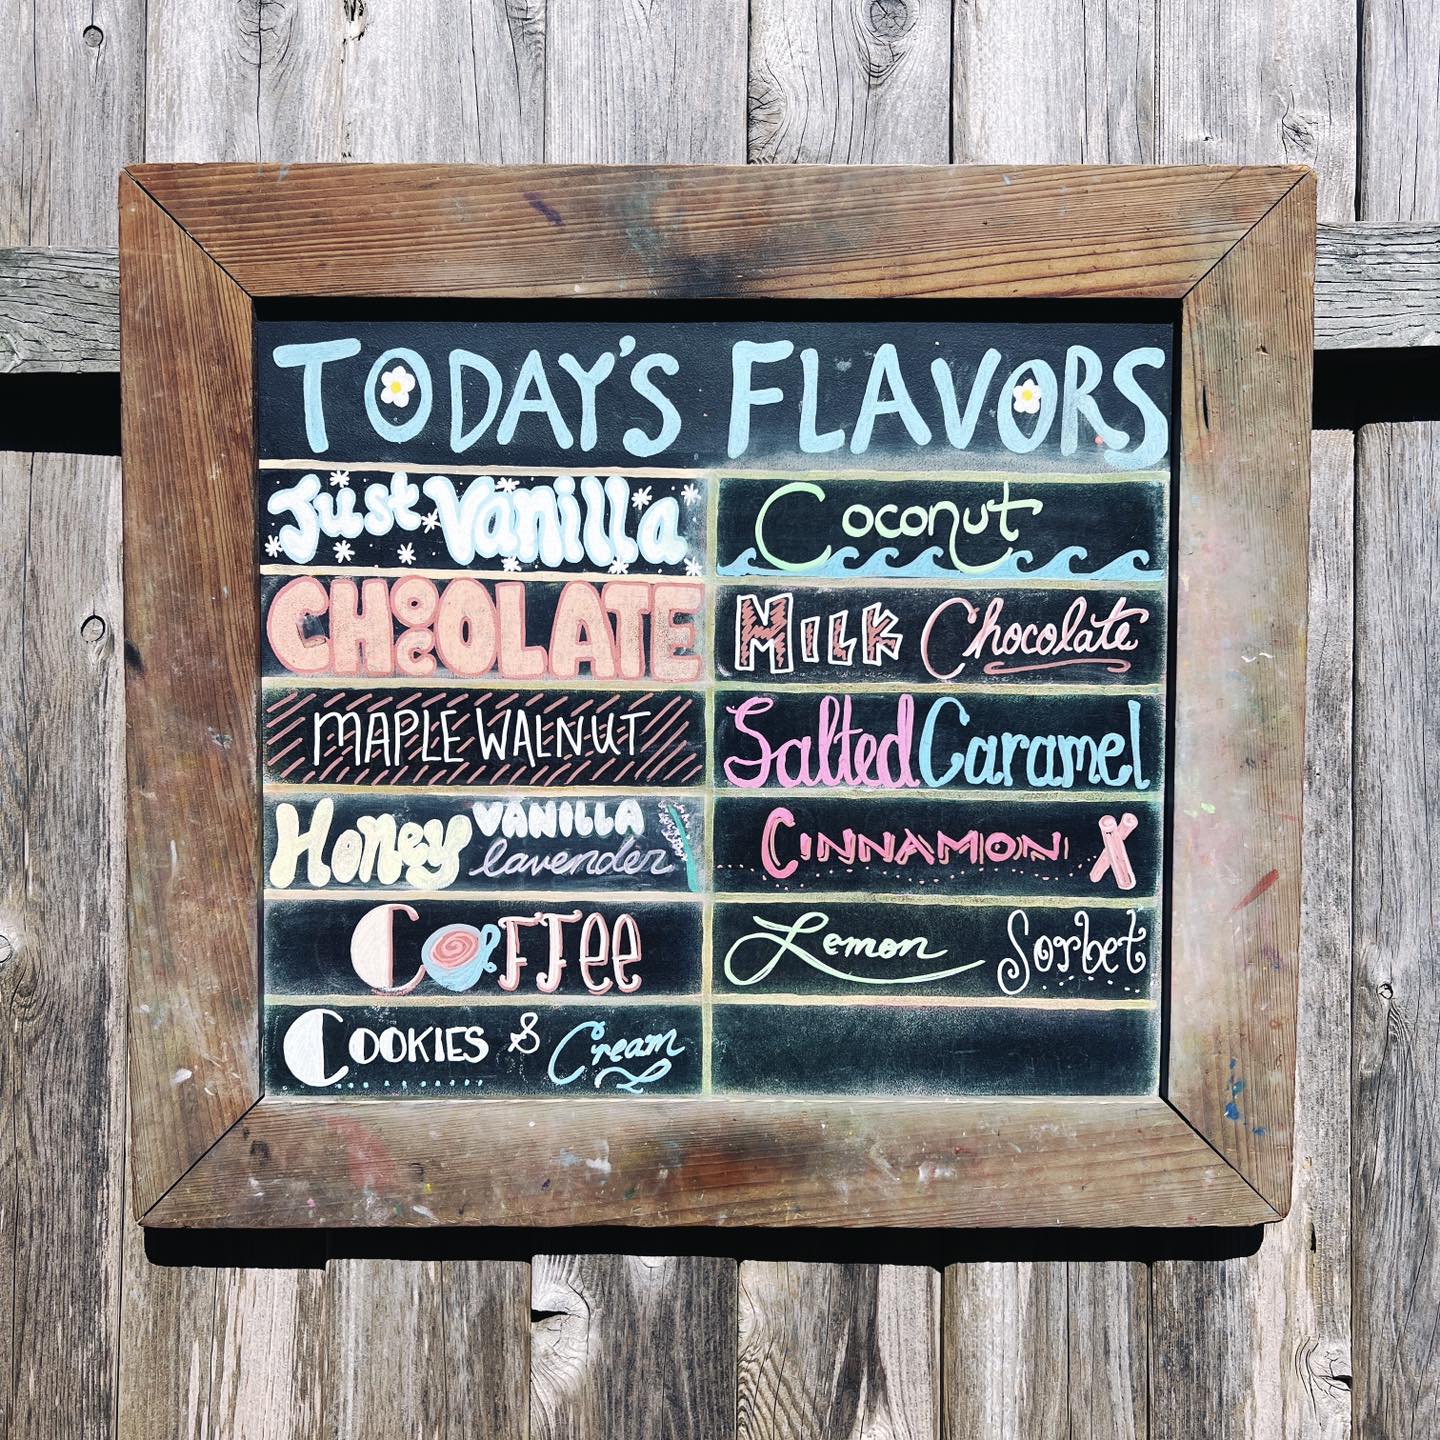 TODAY'S FLAVORS
Just Vanilla
CHOCOLATE
MAPLE WALNUT
Honey VANILLA lavender
COFFEE
COOKIES & Cream
Coconut
MILK Chocolate
Salted Caramel
CINNAMON
Lemon Sorbet